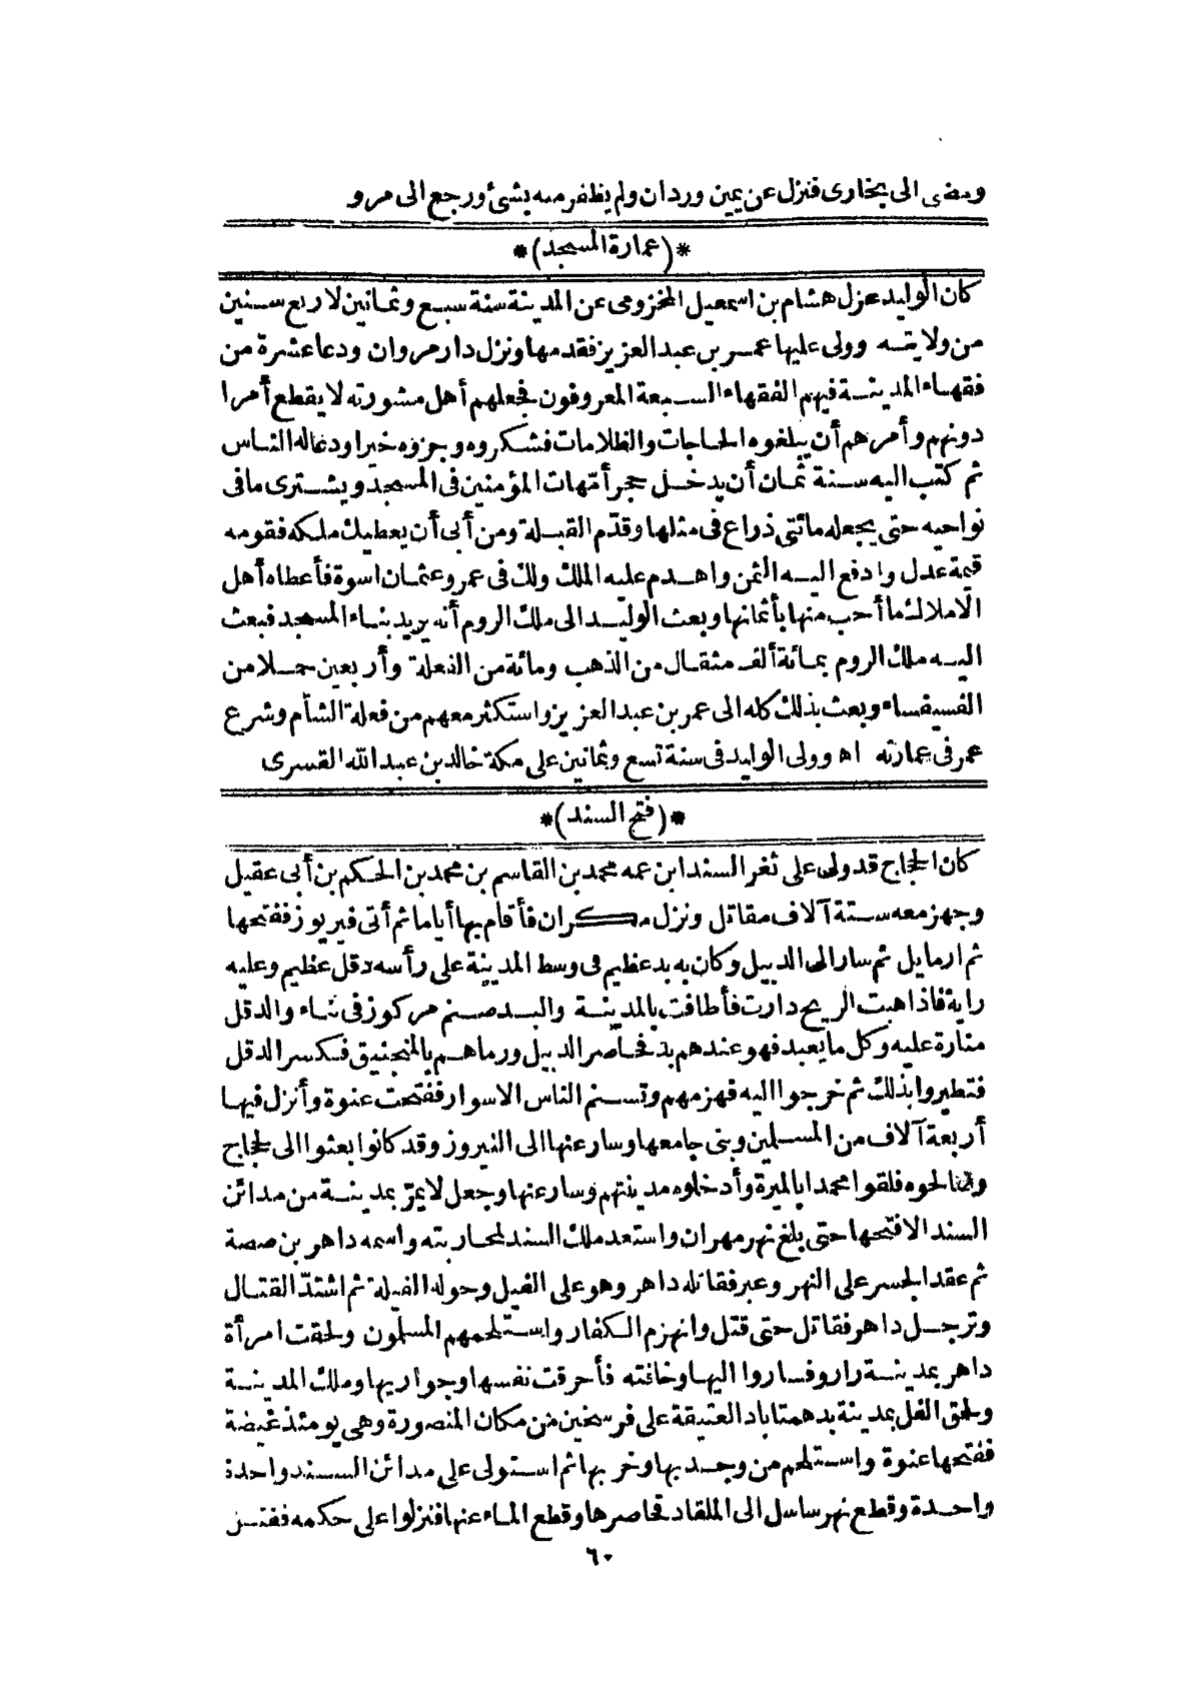 ومضى الى بخارى فنزل عن يمين وردان ولم يظفر منه بشئ ورجع الى مرو
*(عمارة المسجد)*
كان الوليد عزل هشام بن اسمعيل المخزومى عن المدينة سنة سبع وثمانين لاربع سنين
من ولايته وولى عليها عمر بن عبد العزيز فقدمها ونزل دار مروان ودعا عشرة من
فقهاء المدينة فيهم الفقهاء السبعة المعروفون فجعلهم أهل مشورته لا يقطع أمرا
دونهم وأمرهم أن يبلغوه الحاجات والظلامات فشكروه وجزوه خيرا ودعاله الناس
ثم كتب اليه سنة ثمان أن يدخل حجر أمّهات المؤمنين فى المسجد ويشترى ما فى
نواحيه حتى يجعله مائتى ذراع فى مثلها وقدّم القبلة ومن أبى أن يعطيك ملكه فقومه
قيمة عدل وادفع اليه الثمن واهدم عليه الملك ولك فى عمر وعثمان اسوة فأعطاه أهل
الاملاك ما أحب منها بأثمانها وبعث الوليد الى ملك الروم أنه يريد بناء المسجد فبعث
اليه ملك الروم بمائة ألف مثقال من الذهب ومائة من الفعلة وأربعين حملا من
الفسيفساء وبعث بذلك كله الى عمر بن عبد العزيز واستكثر معهم من فعلة الشأم وشرع
عمر فى عمارته اه وولى الوليد فى سنة تسع وثمانين على مكة خالد بن عبد الله القسرى
*(فتح السند)*
كان الحجاج قد ولى على ثغر السند ابن عمه محمد بن القاسم بن محمد بن الحكم بن أبى عقيل
وجهز معه ستة آلاف مقاتل ونزل مكران فأقام بها أياما ثم أتى فيريوز ففتحها
ثم ارمايل ثم سار الى الديبل وكان به بد عظيم فى وسط المدينة على رأسه دقل عظيم وعليه
راية فاذا هبت الريح دارت فأطافت بالمدينة والبد صنم مركوز فى بناء والدقل
منارة عليه وكل ما يعبد فهو عندهم بد فحاصر الديبل ورماهم بالمنجنيق فكسر الدقل
فتطيروا بذلك ثم خرجوا اليه فهزمهم وتسنم الناس الاسوار ففتحت عنوة وأنزل فيها
أربعة آلاف من المسلمين وبنى جامعها وسار عنها الى النيروز وقد كانوا بعثوا الى لحجاج
وصالحوه فلقوا محمدا بالميرة وأدخلوه مدينتهم وسار عنها وجعل لا يمرّ بمدينة من مدائن
السند الا فتحها حتى بلغ نهر مهران واستعد ملك السند لمحاربته واسمه داهر بن صصة
ثم عقد الجسر على النهر وعبر فقاتله داهر وهو على الفيل وحوله الفيلة ثم اشتدّ القتال
وترجل داهر فقاتل حتى قتل وانهزم الكفار واستلحمهم المسلمون ولحقت امرأة
داهر بمدينة راور فساروا اليها وخافته فأحرقت نفسها وجواريها وملك المدينة
ولحق الفل بمدينة بدهمتاباد العتيقة على فرسخين من مكان المنصورة وهى يومئذ غيضة
ففتحها عنوة واستلحم من وجد بها وخربها ثم استولى على مدائن السند واحدة
واحدة وقطع نهر ساسل الى الملقاد فحاصرها وقطع الماء عنها فنزلوا على حكمه فقتل
٦٠